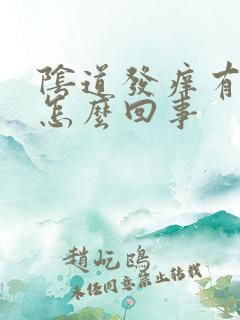 陰道發痒有
怎麼回事
趙屹鷗
未经同意禁止转载